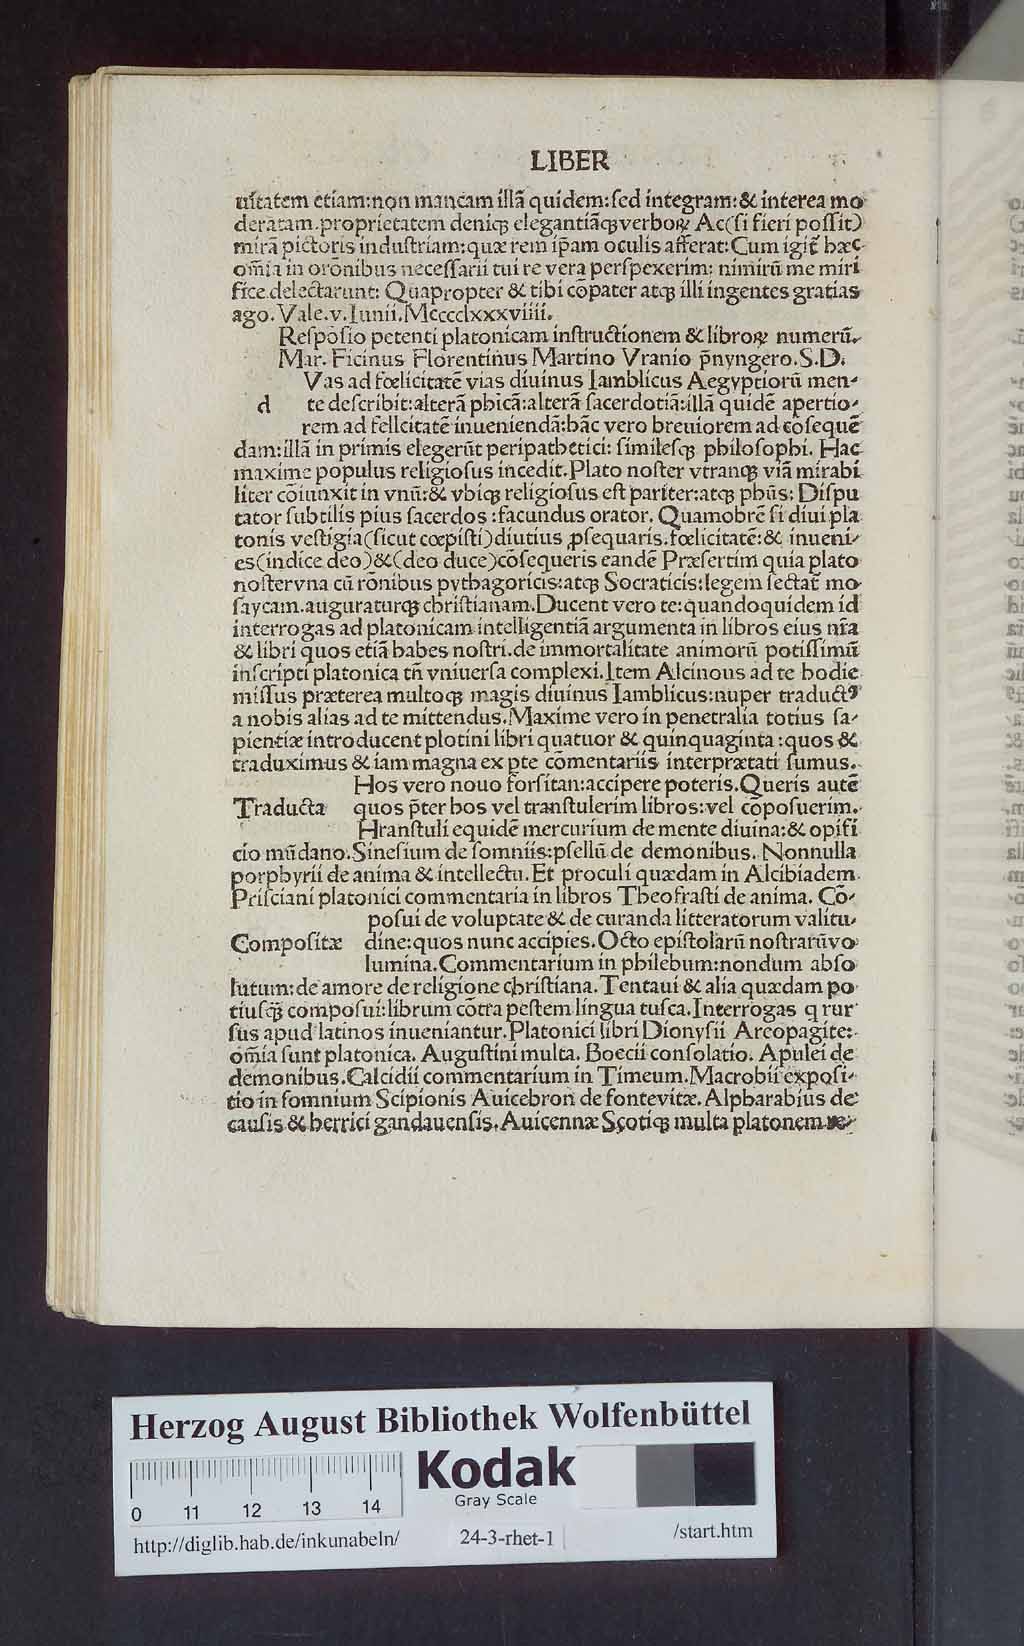 LIBER
uitatem etiam:non mancam illã quidem:ſed integram:& interea mo
deratam.proprietatem deniqꝫ elegantiãqꝫ verboꝝ Ac(ſi fieri poſſit)
mirã pictoris induſtriam:quæ rem ip̃am oculis afferat:Cum igit̃ hæc
om̃ia in orõnibus neceſſarii tui re vera perſpexerim: nimirũ me miri
fice delectarunt: Quapropter & tibi cõpater atqꝫ illi ingentes gratias
ago.Vale.v.Iunii.Mccccclxxxviiii.
Reſpõſio petenti platonicam inſtructionem & libroꝝ numerũ.
Mar. Ficinus Florentinus Martino Vranio p̃nyngero.S.D.
Vas ad fœlicitatẽ vias diuinus Iamblicus Aegyptiorũ men-
d te deſcribit:alterã phicã:alterã ſacerdotiã:illã quidẽ apertio-
rem ad felicitatẽ inueniendã:hãc vero breuiorem ad cõſequẽ
dam:illã in primis elegerũt peripathetici: ſimileſqꝫ philoſophi. Hac
maxime populus religioſus incedit.Plato noſter vtranqꝫ viã mirabi
liter cõiunxit in vnũ:& vbiqꝫ religioſus eſt pariter:atqꝫ phũs: Diſpu
tator ſubtilis pius ſacerdos :facundus orator. Quamobrẽ ſi diui pla
tonis veſtigia(ſicut cœpiſti)diutius ꝓſequaris.fœlicitatẽ:& inueni-
es(indice deo)&(deo duce)cõſequeris eandẽ Præſertim quia plato
noſter vna cũ rõnibus pythagoricis:atqꝫ Socraticis:legem ſectat̃ mo
ſaycam.auguraturqꝫ chriſtianam.Ducent vero te:quandoquidem id
interrogas ad platonicam intelligentiã argumenta in libros eius nr̃a
& libri quos etiã habes noſtri.de immortalitate animorũ potiſſimũ
inſcripti platonica tñ vniuerſa complexi.Item Alcinous ad te hodie
miſſus præterea multoqꝫ magis diuinus Iamblicus:nuper traductꝰ
a nobis alias ad te mittendus.Maxime vero in penetralia totius ſa-
pientiæ introducent plotini libri quatuor & quinquaginta :quos &
traduximus & iam magna ex pte cõmentariis interprætati ſumus.
Hos vero nouo forſitan:accipere poteris.Queris autẽ
Traducta quos p̃ter hos vel tranſtulerim libros:vel cõpoſuerim.
Hranſtuli equidẽ mercurium de mente diuina:& opifi
cio mũdano.Sineſium de ſomniis:pſellũ de demonibus. Nonnulla
porphyrii de anima & intellectu.Et proculi quædam in Alcibiadem
Priſciani platonici commentaria in libros Theofraſti de anima. Cõ-
poſui de voluptate & de curanda litteratorum valitu-
Compoſitæ dine:quos nunc accipies.Octo epiſtolarũ noſtrarũ vo
lumina.Commentarium in philebum:nondum abſo
lutum:de amore de religione chriſtiana.Tentaui & alia quædam po
tiuſqꝫ compoſui:librum cõtra peſtem lingua tuſca.Interrogas q rur
ſus apud latinos inueniantur.Platonici libri Dionyſii Areopagite:
om̃ia ſunt platonica. Auguſtini multa. Boecii conſolatio. Apulei de
demonibus.Calcidii commentarium in Timeum.Macrobii expoſi-
tio in ſomnium Scipionis Auicebron de fontevitæ.Alpharabius de
cauſis & herrici gandauenſis.Auicennæ Scotiqꝫ multa platonem re-
Herzog August Bibliothek Wolfenbüttel
Kodak
Gray Scale
0 11 12 13 14
http://diglib.hab.de/inkunabeln/ 24-3-rhet-1 /start.htm